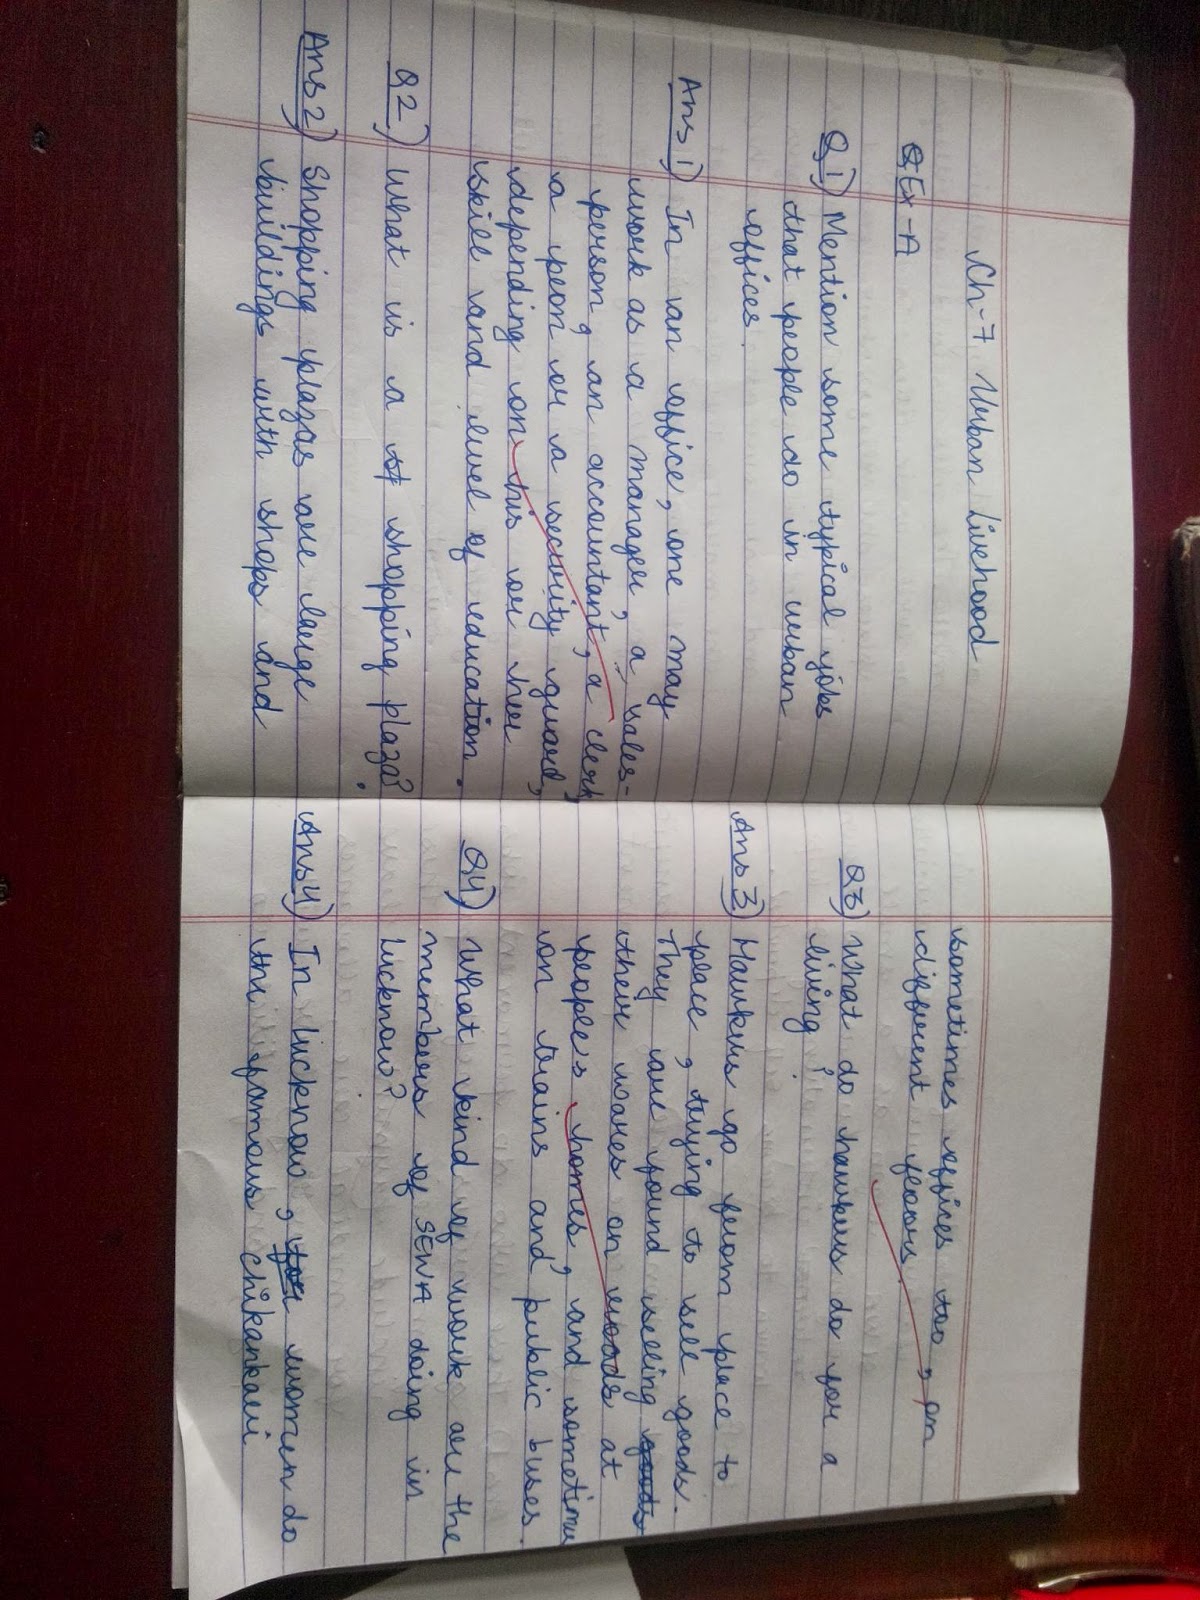 Ch-7 Urban Livehood
Ex-A
Q1) Mention some typical jobs
that people do in urban
offices.
Ans 1) In an office, one may
work as a manager, a sales-
person, an accountant, a clerk,
a peon or a security guard,
depending on his or her
skill and level of education.
Q2) What is a shopping plaza?
Ans 2) Shopping plazas are large
buildings with shops and
sometimes offices too, on
different floors.
Q3) What do hawkers do for a
living?
Ans 3) Hawkers go from place to
place, trying to sell goods.
They are found selling goods
their wares on roads at
people's homes, and sometime
on trains and public buses.
Q4) What kind of work are the
members of SEWA doing in
Lucknow?
Ans 4) In Lucknow, women do
the famous chikankari